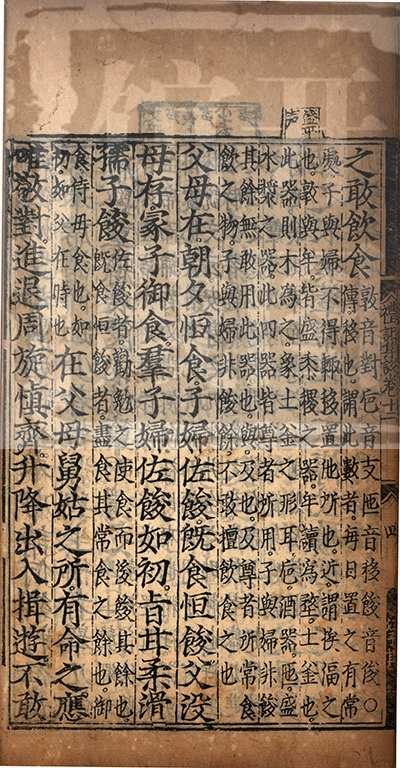 盛平声
之敢飲食敦音對卮音支匜音移餕音俊○
傳移也謂此數者每日置之有常
處子與婦不得輒移置他所也近謂挨偪之
也敦與牟皆盛黍稷之器牟讀為堥土釜也
此器則木為之象土釜之形耳卮酒器匜盛
水漿之器此四器皆尊者所用子與婦非餕
其餘無敢用此器也與及也及尊者所常食
飲之物子與婦非餕餘不敢擅飲食也
父母在朝夕恒食子婦佐餕旣食恒餕父没
母存冢子御食羣子婦佐餕如初旨甘柔滑
孺子餕佐餕者勸勉之使食而後餕其餘也
旣食恒餕者盡食其常食之餘也御
食侍母食也如
初如父在時也在父母舅姑之所有命之應
唯敬對進退周旋慎齊升降出入揖遊不敢
四